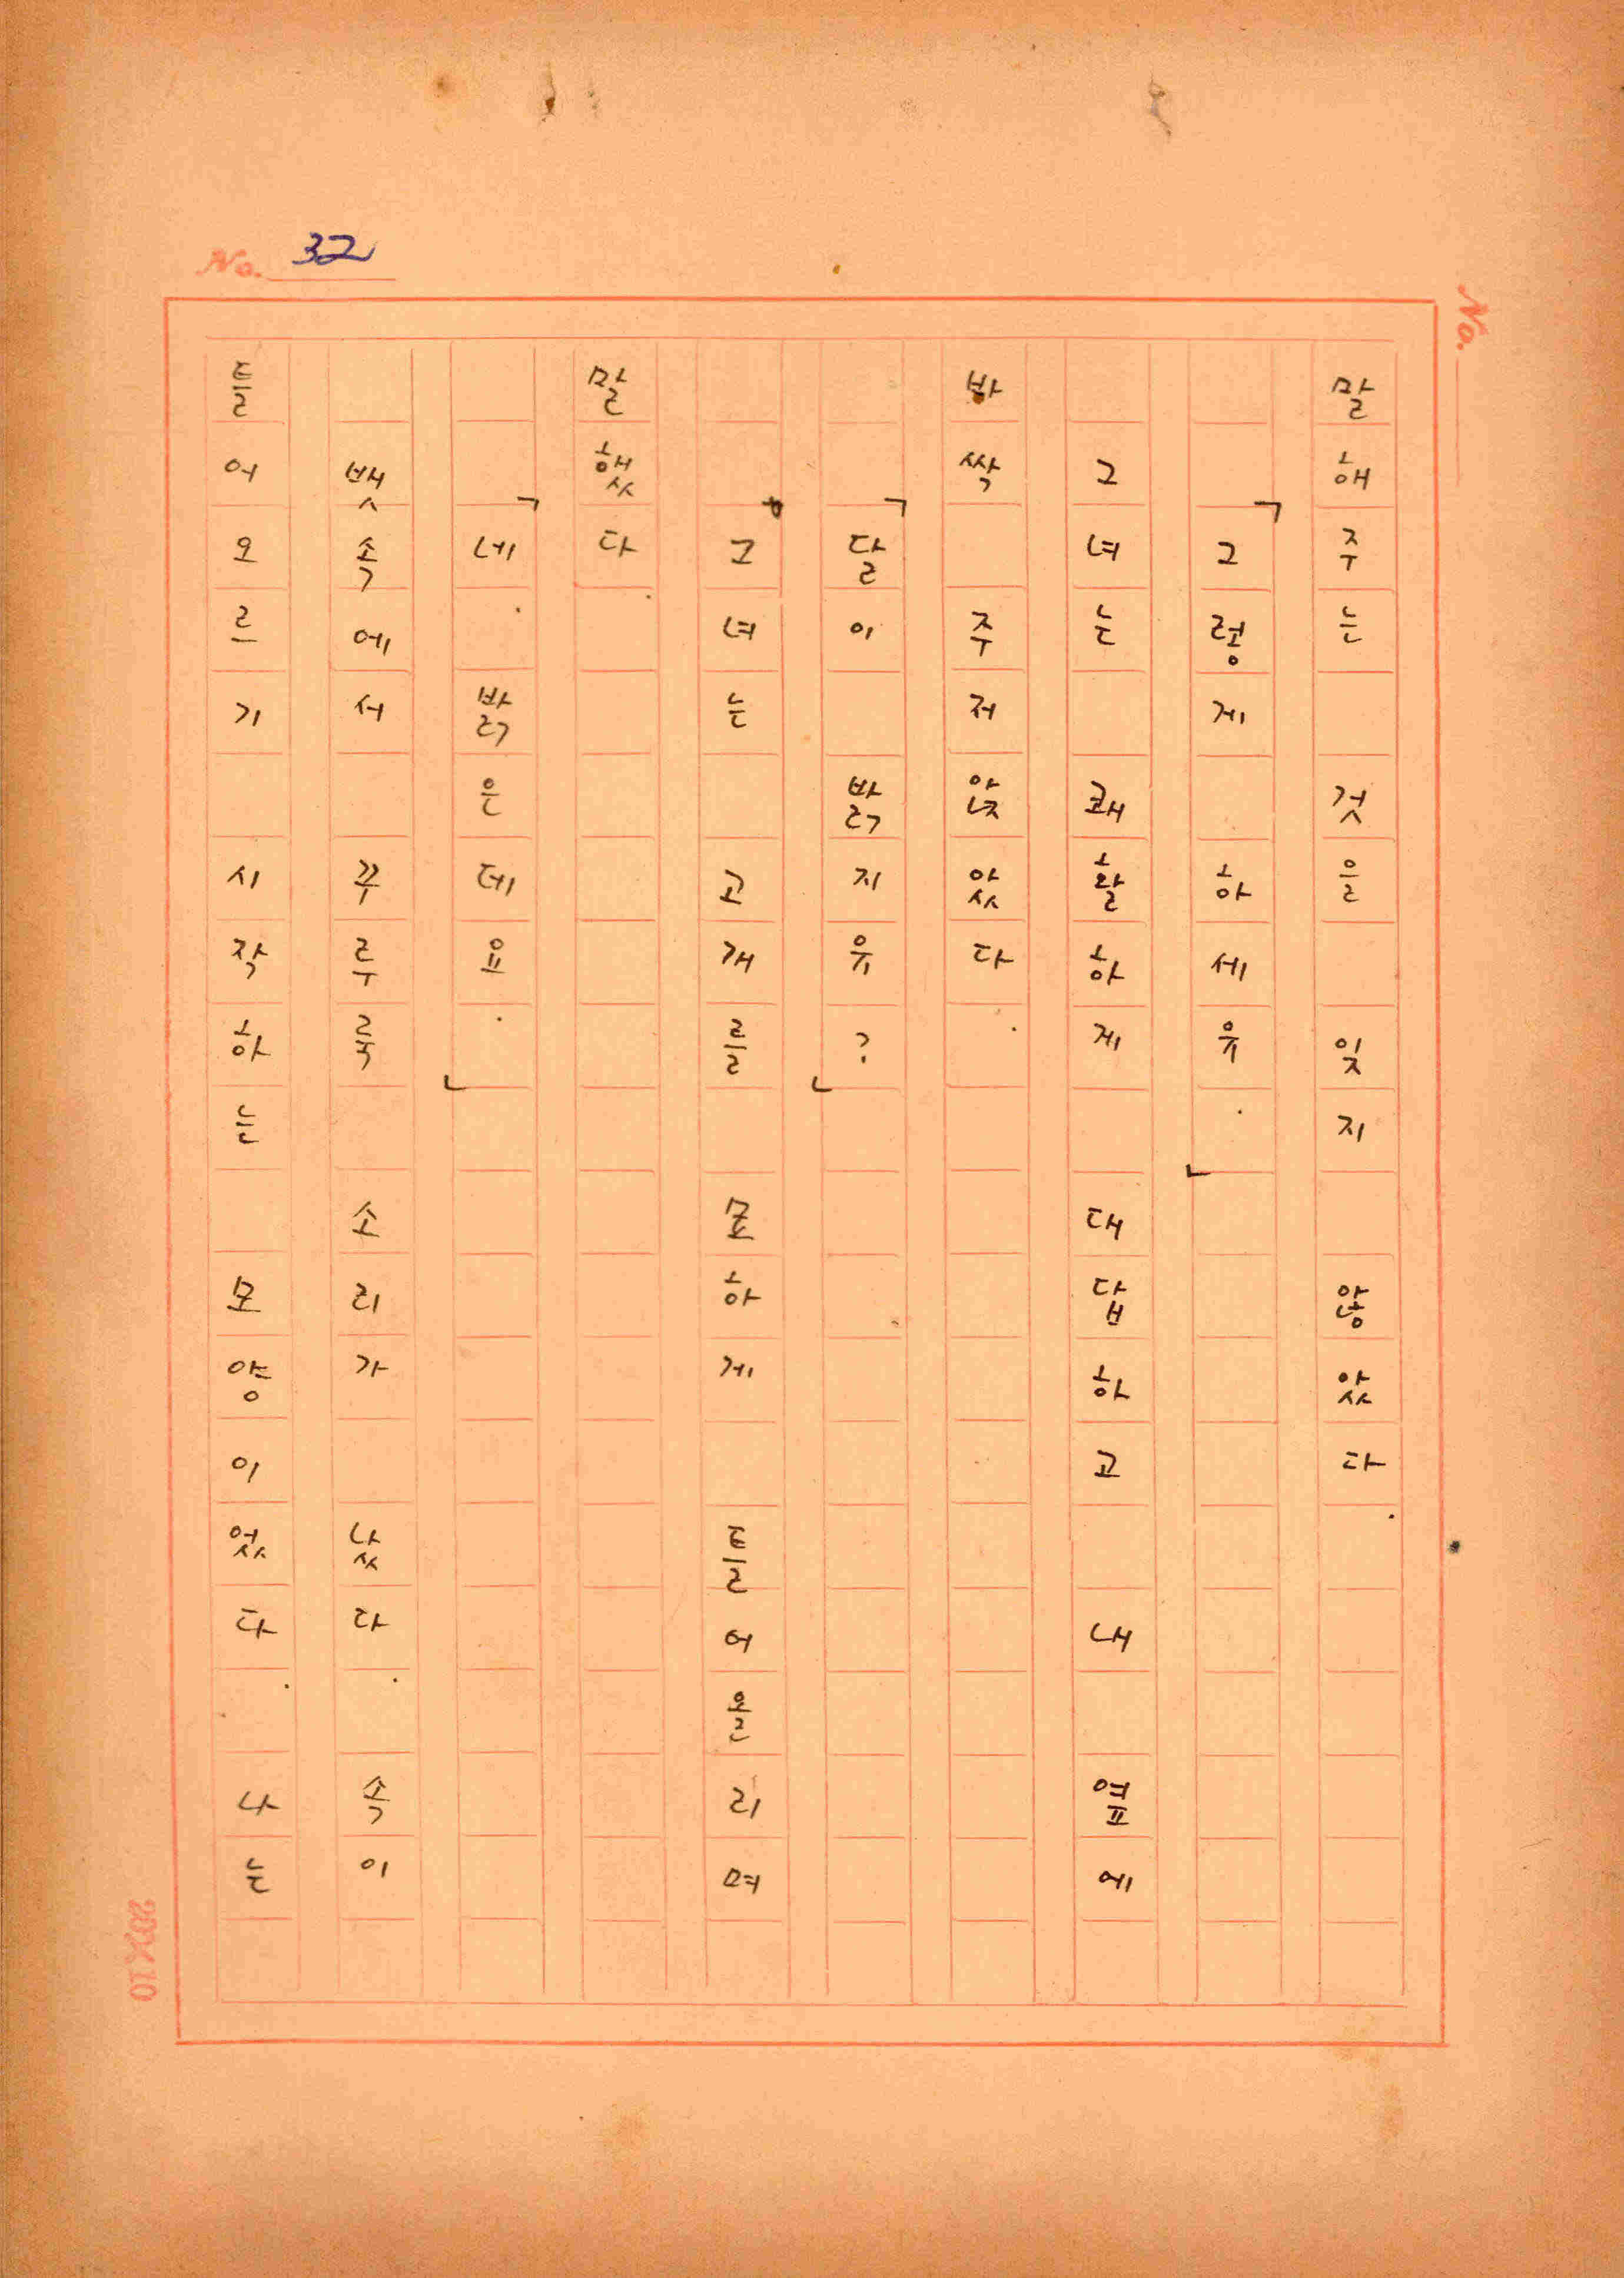 No. 32
No.
말해주는 것을 잊지 않았다.
「그렇게 하세유.」
그녀는 쾌활하게 대답하고 내 옆에
바싹 주저앉았다.
「달이 밝지유?」
그녀는 고개를 묘하게 틀어올리며
말했다.
「네. 밝은데요.」
뱃속에서 꾸루룩 소리가 났다. 속이
틀어오르기 시작하는 모양이었다. 나는
20X10